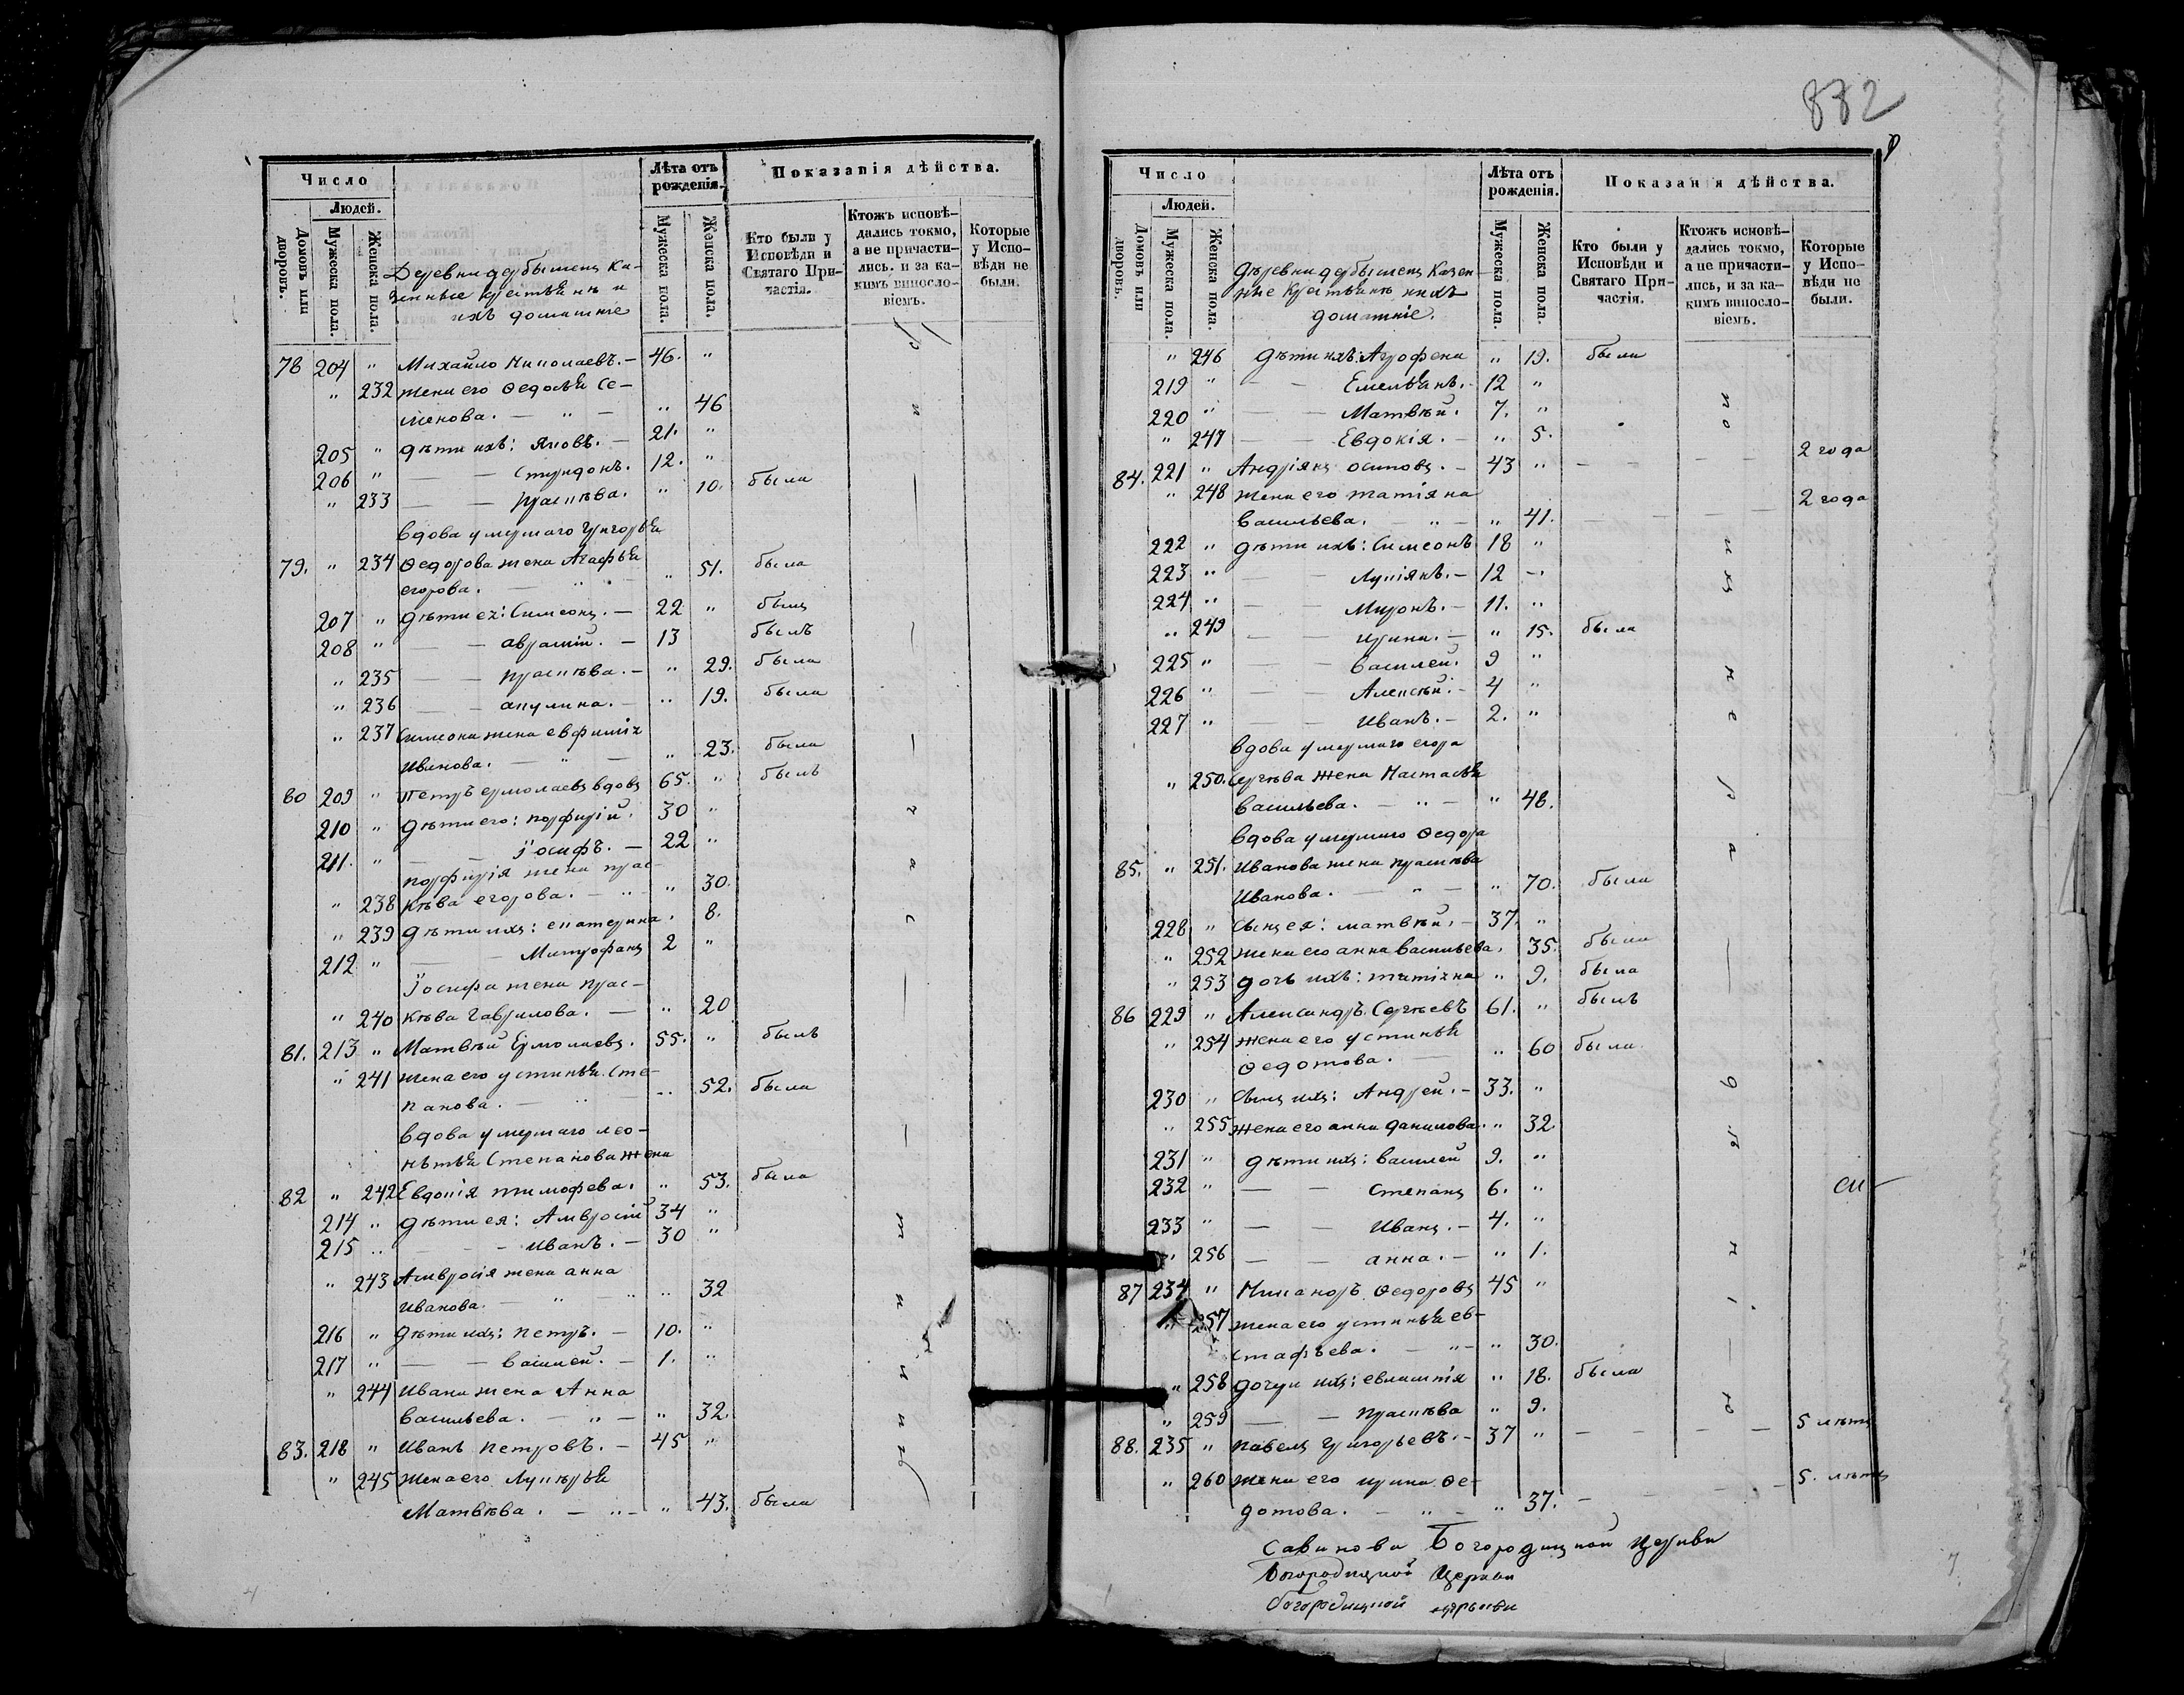 882
Число
Людей.
Домовъ или дворовъ.
Мужеска пола.
Женска пола.
Лѣта отъ рожденія.
Мужеска пола.
Женска пола.
Показанія дѣйства.
Кто были у Исповѣди и Святаго Причастія.
Ктожъ исповѣдались токмо, а не причастились. и за какимъ винословіемъ.
Которые у Исповѣди не были.
Деревни дербышец Ка-
зенные крестьянъ и
ихъ домашніе
78 204 " Михайло Николаевъ. — 46. "
" 232 жена его Ѳедосья Се-
менова. — " — " 46
205 " дѣти ихъ: Яковъ. — 21. "
206 " — — Спиридонъ. 12. "
" 233 — — Прасковья. " 10. была
вдова умершаго Григорья
79. " 234 Ѳедорова жена Агафья
егорова. — " — " 51. была
207 " дѣти ея: Симеонъ. — 22 " былъ
208 " — — аврамій. — 13 былъ
" 235 — — Прасковья. — " 29. была
" 236 — — акулина. — " 19. была
" 237 Симеона жена евфимія
Иванова. — " — " 23. была
80 209 " Петръ ермолаевъ вдовъ 65. " былъ
210 " дѣти его: порфирій. 30 "
211. " — — Іосифъ. — 22 "
порфирія жена прас-
" 238 ковья егорова. — " — " 30.
" 239 дѣти ихъ: екатерина. 8.
212 " — — Митрофанъ 2 "
Іосифа жена прас-
" 240 ковья гаврилова. — " 20
81. 213 " Матвѣй Ермолаевъ. 55. " былъ
" 241 жена его устинья Сте-
панова. — " — " 52. была
вдова умершаго лео-
нтья Степанова жена
82 " 242 Евдокія тимофева. " 53. была
214 " дѣти ея: Амвросій 34 "
215 " — — Иванъ. — 30 "
" 243 Амвросія жена анна
иванова. — " — " 32
216 " дѣти ихъ: петръ. — 10. "
217 " — — василей. — 1. "
" 244 Ивана жена Анна
васильева. — " — " 32.
83. 218 " Иванъ петровъ. — 45 "
" 245 жена его Лукерья
Матвѣва. — " — " 43. была
Число
Людей.
Домовъ или дворовъ.
Мужеска пола
Женска пола.
Лѣта отъ рожденія.
Мужеска пола.
Женска пола.
Показанія дѣйства.
Кто были у Исповѣди и Святаго Причастія.
Ктожъ исповѣдались токмо, а не причастились, и за какимъ винословіемъ.
Которые у Исповѣди не были.
дѣревни дербышец Казен-
ные крестьянъ ихъ
домашніе.
" 246 дѣти ихъ: Агрофена " 19. была
219 " — — Емельянъ. — 12 "
220 " — — Матвѣй. 7. "
" 247 — — Евдокія. — " 5.
84. 221 " Андріянъ осиповъ. — 43 " — — — — 2 года
" 248 жена его татіяна
васильева. — " — " 41. — — — — 2 года
222 " дѣти ихъ: Симеонъ 18 "
223 " — — Лукіянъ. — 12 "
224 " — — Миронъ. — 11. "
" 249 — — ирина. — " 15. была
225 " — — василей. 9 "
226 " — — Алексѣй. — 4 "
227 " — — Иванъ. — 2. "
вдова умершаго егора
" 250. Сергѣва жена Настасья
васильева. — " — " 48.
вдова умершаго Ѳедора
85. " 251. Иванова жена прасковья
Иванова. — " — " 70. была
228 " Сынъ ея: матвѣй. — 37. "
" 252 жена его анна васильева. 35. была
" 253 дочь ихъ: татіяна " 9. была
86 229 " Александръ Сергѣевъ 61. " былъ
" 254 жена его устинья
Ѳедотова. — " 60 была
230 " Сынъ ихъ: Андрей. — 33. "
" 255 жена его анна данилова. " 32
231 " дѣти ихъ: василей 9. "
232 " — — Степанъ 6. "
233 " — — Иванъ. — 4. "
" 256 — — анна. — " 1.
87 234 " Никаноръ Ѳедоровъ 45 "
" 257 жена его устинья ев-
стафьева. — " — " 30.
" 258 дочери ихъ: евлампія " 18. была
" 259 — — прасковья " 9.
88. 235 " павелъ Григорьевъ. — 37 " — — — — 5 лѣтъ
" 260 жена его ирина Ѳе-
дотова. — " — " 37. — — — — 5. лѣтъ
Савинова Богородицкой церкви
Богородицкой Церкви
богородицкой церкви